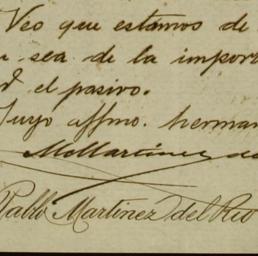 Veo que estamos de
sea de la impor
el pasivo.
Tuyo affmo. herman
McMartinez de
Pablo Martinez del Rio